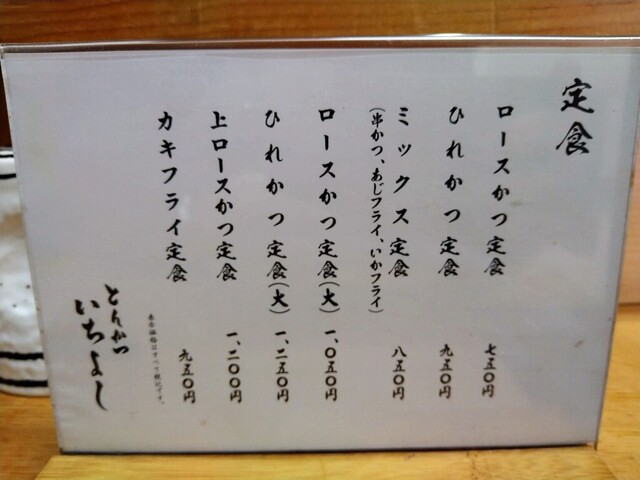 定食
ロースかつ定食 七五〇円
ひれかつ定食 九五〇円
ミックス定食 八五〇円
(串かつ、あじフライ、いかフライ)
ロースかつ定食(大) 一、〇五〇円
ひれかつ定食(大) 一、二五〇円
上ロースかつ定食 一、二〇〇円
カキフライ定食 九五〇円
とんかつ
いちよし